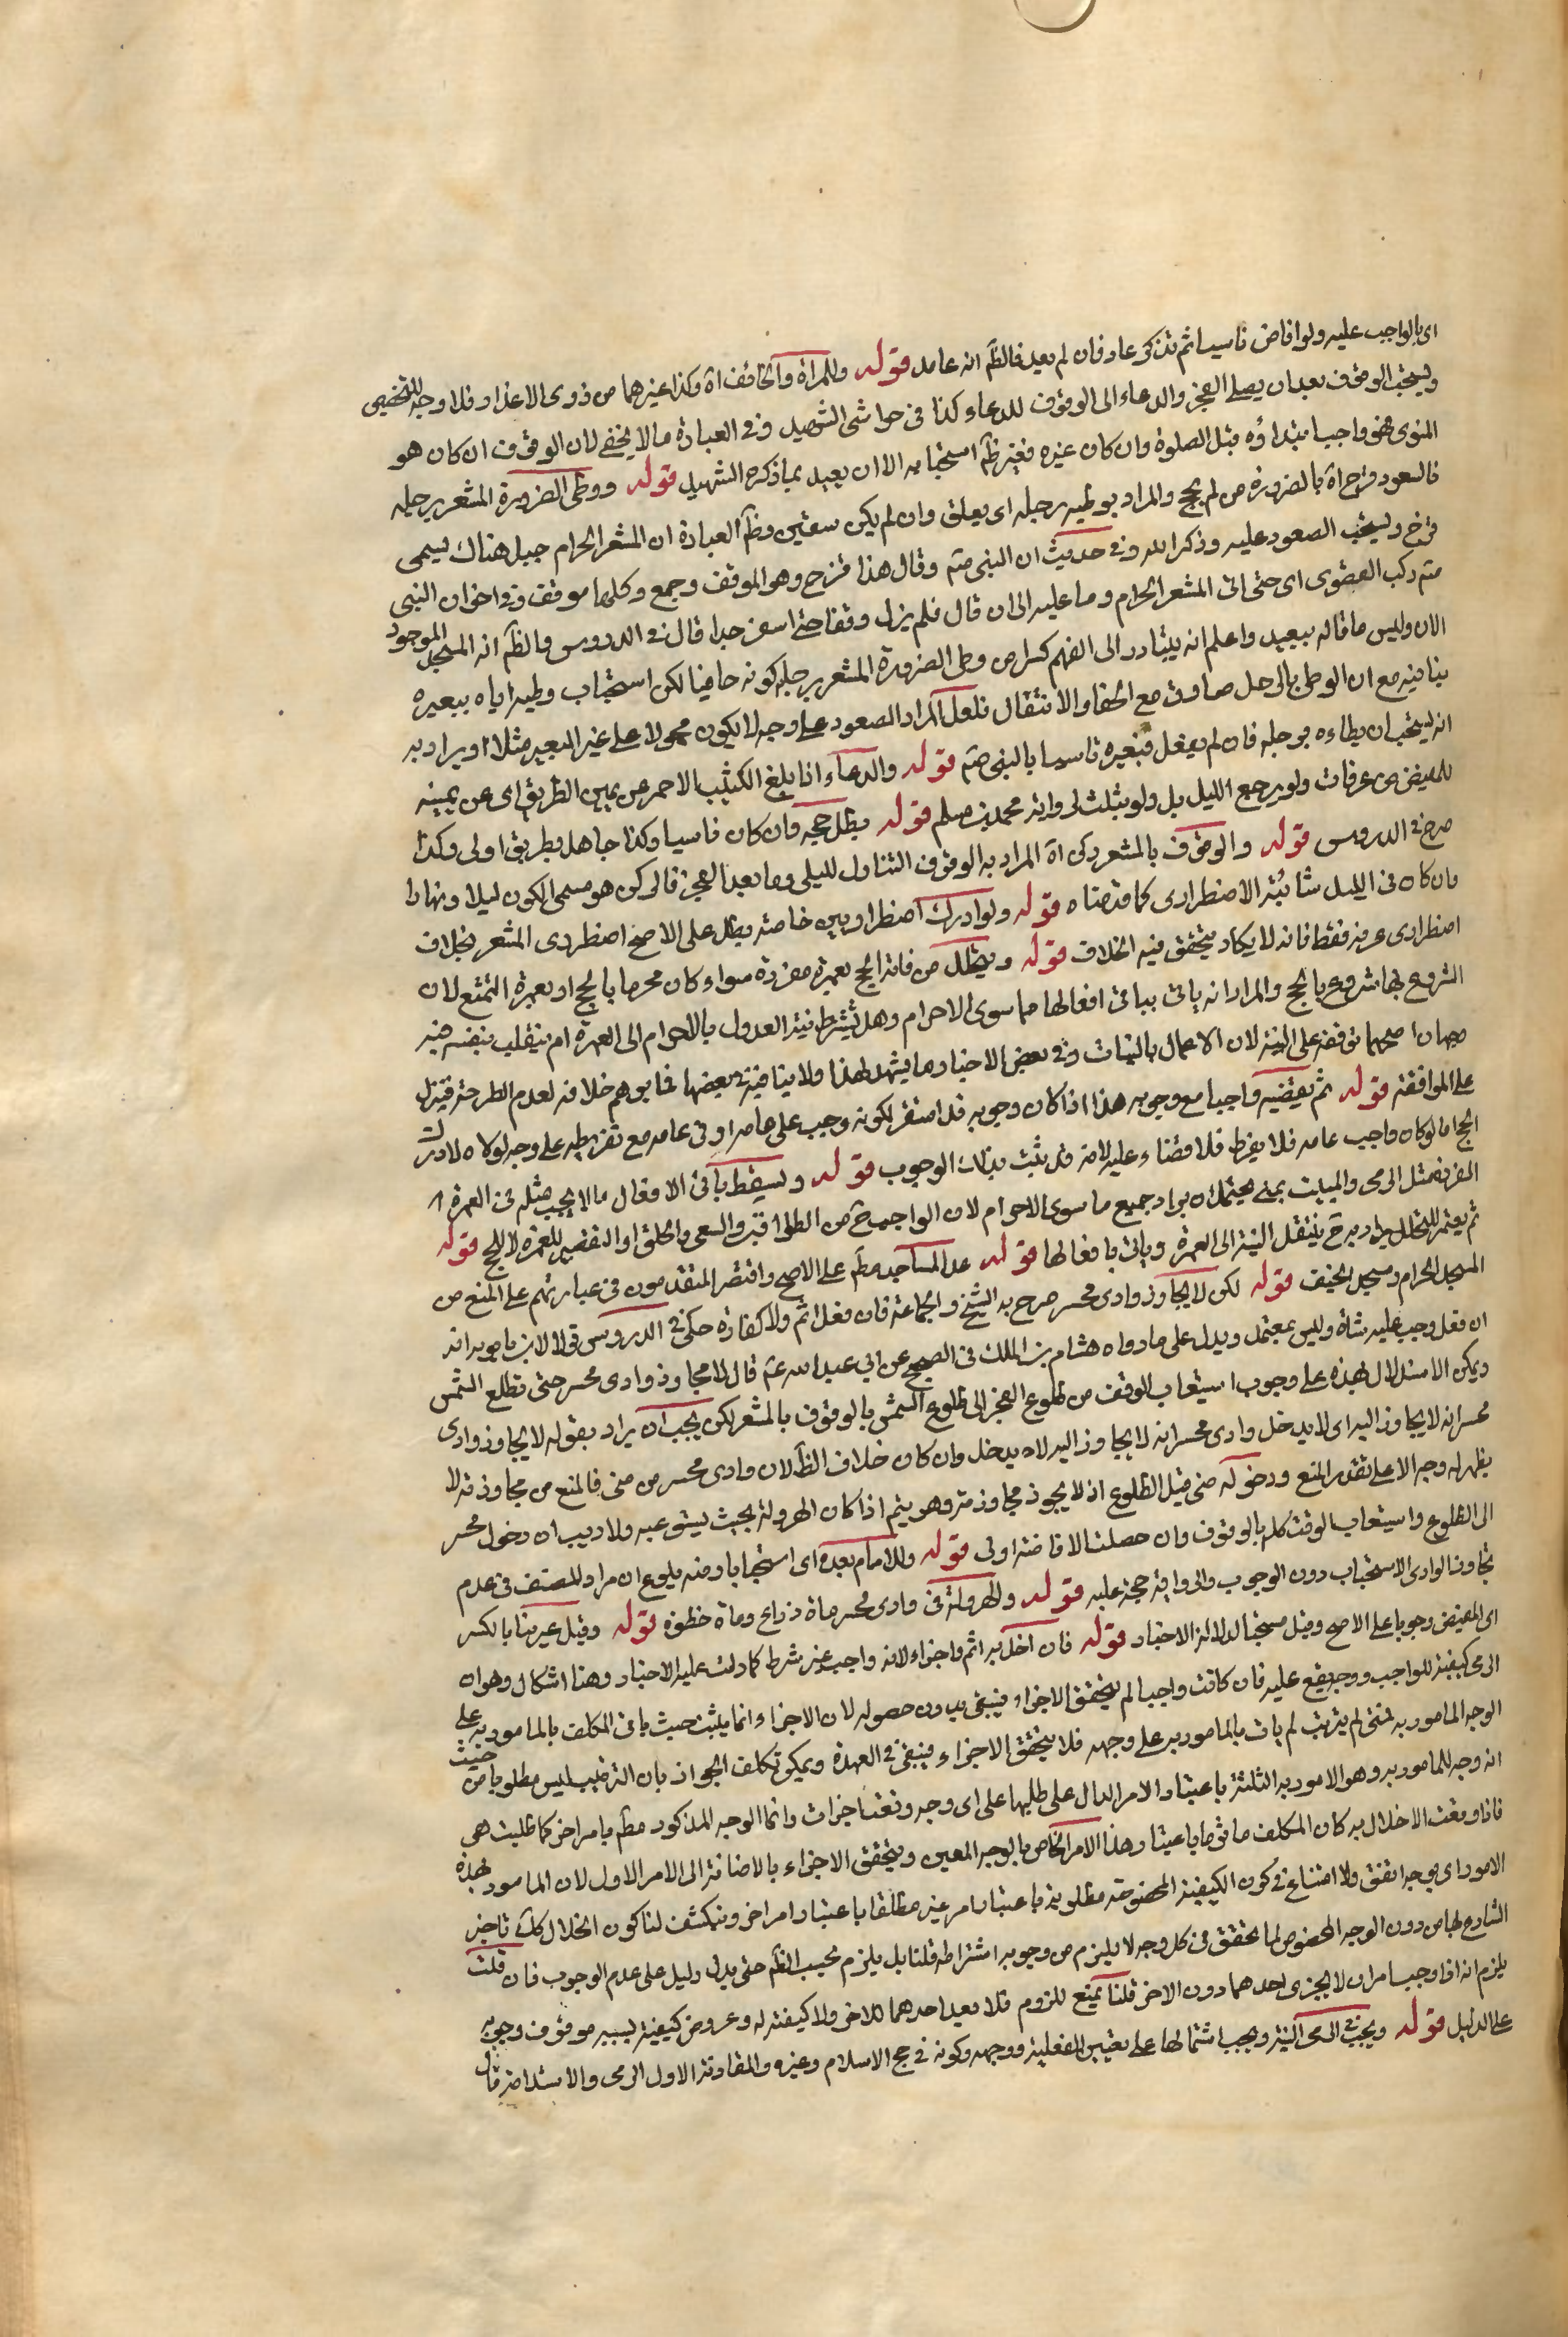 اى بالواجب عليه ولو افاض ناسيا ثم تذكر عاد فان لم يعد فالظ انه عامد قوله وللمراة والخائف اه وكذا غيرهما من ذوى الاعذار فلا وجه للتخصيص
ويستحب الوقوف بعد ان يصلى الفجر والدعاء الى الوقوف للدعاء كذا فى حواشى الشهيد وفى العبارة ما لا يخفى لان الوقوف ان كان هو
المنوى فهو واجب ابتداؤه قبل الصلوة وان كان غيره فغير ظ استحبابه الا ان يعيد بما ذكره الشهيد قوله ووطى الصرورة المشعر برجله
فالصعود قزح اه بالصرورة من لم يحج والمراد بوطيه برجله اى يعلق وان لم يكن سعتين وظ العبارة ان المشعر الحرام جبل هناك يسمى
قزح ويستحب الصعود عليه وذكر الله وفى حديث ان النبى صم وقال هذا قزح وهو الموقف وجمع وكلها موقف وفى اخر ان النبى
صم ركب القصوى اى حتى اتى المشعر الحرام وما عليه الى ان قال فلم يزل وقفا حتى اسفر جدا قال فى الدروس والظ انه المسجد الموجود
الان وليس ما قاله ببعيد واعلم انه يتبادر الى الفهم كسل من وطى الصرورة المشعر برجله كونه حافيا لكن استحباب وطيه اياه ببعيره
ينافيه مع ان الوطى بالرجل صادق مع الحفا والانتقال فلعل المراد الصعود على وجه لا يكون محمولا على غير البعير مثلا او يراد به
انه يستحب ان يطاءه برجله فان لم يفعل فببعيره تاسيا بالنبى صم قوله والدعاء اذا بلغ الكثيب الاحمر عن يمين الطريق اى عن يمينه
للمفيض من عرفات ولو بربع الليل بل ولو بثلث لرواية محمد بن مسلم قوله بطل حجه وان كان ناسيا وكذا جاهل بطريق اولى وكذا
صرح فى الدروس قوله والوقوف بالمشعر ركن اه المراد به الوقوف المتناول لليلى وما بعد الفجر فالركن هو مسمى الكون ليلا ونهارا
وان كان فى الليل شائبة الاضطرارى كما قدمناه قوله ولو ادرك اضطراريين خاصة بطل على الاصح اضطررى المشعر بخلاف
اضطرارى عرفة فقط فانه لا يكاد يتحقق فيه الخلاف قوله ويتحلل من فاته الحج بعمرة مفردة سواء كان محرما بالحج او بعمرة التمتع لان
الشروع بها شروع بالحج والمراد انه ياتى بباقى افعالها مما سوى الاحرام وهل تشترط نية العدول بالاحرام الى العمرة ام ينقلب بنفسه فيه
وجهان اصحهما توقفه على النية لان الاعمال بالنيات وفى بعض الاخبار ما يشهد لهذا ولا ينافيه فى بعضها مما يوهم خلافه لعدم الطرحة فتنزل
على الموافقة قوله ثم يقضيه واجبا مع وجوبه هذا اذا كان وجوبه قد استقر لكونه وجب على عامه او فى عامه مع تفريطه على وجه لولاه لادرك
الحج اما لو كان واجب عامه فلا يفرط فلا قضاء عليه لانه لم يثبت بذلك الوجوب قوله ويسقط باقى الافعال ما لا يجب مثله فى العمرة
المفردة مثل الرمى والمبيت بمنى يحتمل ان يراد جميع ما سوى الاحرام لان الواجب ح من الطواف والسعى والحلق او التقصير للعمرة لا للحج قوله
ثم يعتمر للتحلل يراد به ح ينتقل النية الى العمرة وياتى بافعالها قوله عدا المساجد مط على الاصح واقتصر المتقدمون فى عبارتهم على المنع من
المسجد الحرام ومسجد الخيف قوله لكن لا يجاوز وادى محسر صرح به الشيخ والجماعة فان فعل اثم ولا كفارة حكى فى الدروس قولا لابن بابويه انه
ان فعل وجب عليه شاة وليس بمعتمد ويدل على ما رواه هشام بن الملك فى الصحيح عن ابى عبد الله عم قال لا مجاوز وادى محسر حتى تطلع الشمس
ويمكن الاستدلال بهذه على وجوب استيعاب الوقف من طلوع الفجر الى طلوع الشمس بالوقوف بالمشعر لكن يجب ان يراد بقوله لا يجاوز وادى
محسر انه لا يجاوز اليه اى لا يدخل وادى محسر انه لا يجاوز اليه لان يدخل وان كان خلاف الظ لان وادى محسر من منى فالمنع من مجاوزته لا
يظهر له وجه الا على تقدير المنع ودخوله منى قبل الطلوع اذ لا يجوز مجاوزته وهو يتم اذا كان الهرولة بحيث يستوعبه ولا ريب ان دخول محسر
الى الطلوع واستيعاب الوقت كله بالوقوف وان حصلت الافاضة اولى قوله وللامام بعده اى استحبابا ومنه يلوح ان مراد المصنف فى عدم
تجاوز الوادى الاستحباب دون الوجوب والرواية حجة عليه قوله والهرولة فى وادى محسر ماة ذراع وماة خطوة قوله وقيل عرنا بالكسر
اى المفيض وجوبا على الاصح وقيل مستحبا لدلالة الاخبار قوله فان اخل به اثم واجزاء لانه واجب غير شرط كما دلت عليه الاخبار وهنا اشكال وهو ان
الرمى كيفية للواجب ووجه يقع عليه فان كانت واجبا لم يتحقق الاجزاء فيبقى بدون حصوله لان الاجزاء انما يثبت حيث ياتى المكلف بالمامور به على
الوجه المامور به فمتى لم يترتب لم يات بالمامور به على وجهه فلا يتحقق الاجزاء فيبقى فى العهدة ويمكن تكلف الجواز بان الترتيب ليس مطلوبا من حيث
انه وجه للمامور به وهو الامور به الثلثة باعتبار الامر الدال على طلبها على اى وجه وقعت اجزات وانما الوجه المذكور مط بامر اخر كما طلبت هى
فاذا وقعت الاخلال به كان المكلف ماثوما باعتبار هذا الامر الخاص بالوجه المعين ويتحقق الاجزاء بالاضافة الى الامر الاول لان المامور بهذه
الامور اى بوجه اتفق ولا امتناع فى كون الكيفية المخصوصة مطلوبة باعتبار امر غير مطلقا باعتبار امر اخر وينكشف لنا كون الخلال كلت تاخير
الشارع لها من دون الوجه المخصوص لما تحقق فى كل وجه لا يلزم من وجوبه اشتراطه قلنا بل يلزم بحسب الظ حتى يدل دليل على عدم الوجوب فان قلت
يلزم انه اذا وجب امران لا يجزى احدهما دون الاخر قلنا نمنع للزوم فلا بعد احدهما للاخر ولا كيفية له وعروض كيفية بسببه موقوف وجوبه
على الدليل قوله ويجب فى الرمى النية ويجب اشتمالها على تعيين الفعلية ووجهه وكونه فى حج الاسلام وغيره والمقاونة الاول الرمى والاستدامة قال